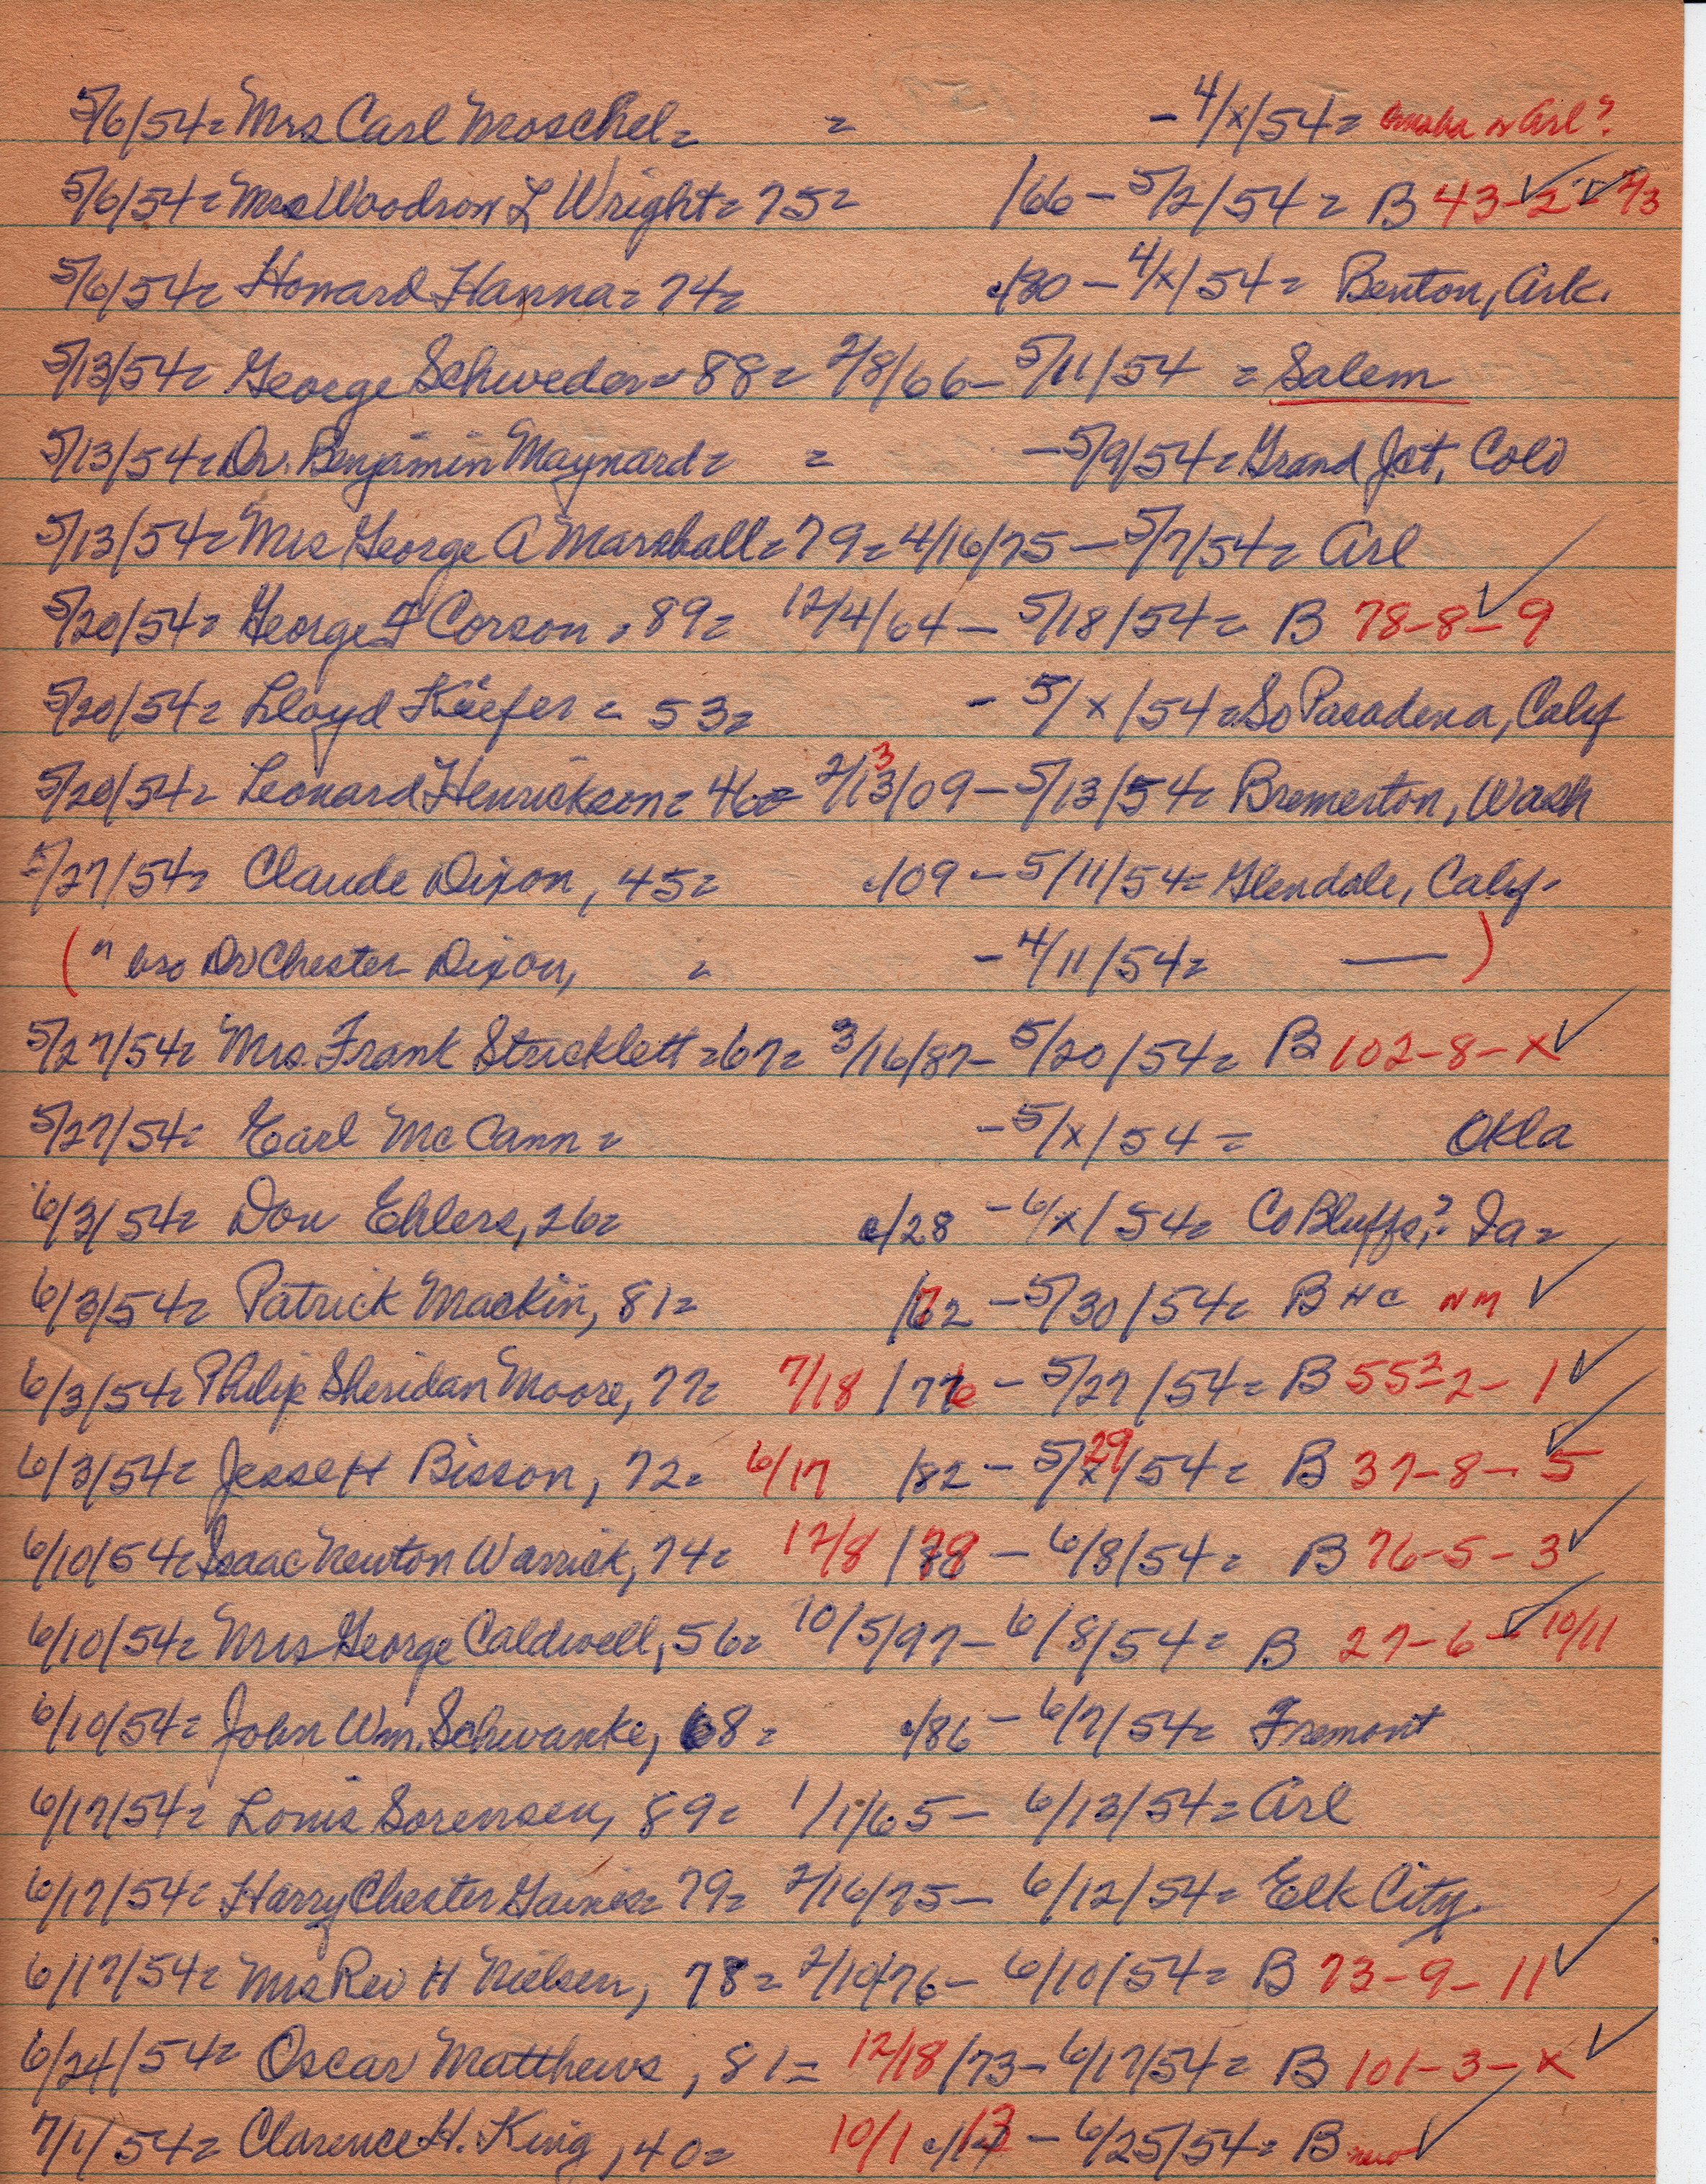 5/6/54= Mrs Carl Moschel= = - 4/x/54= Omaha or Arl?
5/6/54= Mrs Woodson L Wright= 75= /66 - 5/2/54= B 43-2- 2/3
5/6/54= Howard Hanna= 74= c/80 - 4/x/54= Benton, Ark.
5/13/54= George Schweder= 88= 2/8/66- 5/11/54 = Salem
5/13/54= Dr. Benjamin Maynard= = - 5/9/54= Grand Jct, Colo
5/13/54= Mrs George A Marshall= 79= 4/16/75 - 5/7/54= Arl
5/20/54= George F Corson, 89= 12/4/64 - 5/18/54= B 78-8-9
5/20/54= Lloyd Kiefer = 53= - 5/x/54= So Pasadena, Calif
5/20/54= Leonard Henrickson= 46= 2/13/09 - 5/13/54= Bremerton, Wash 3
5/27/54= Claude Dixon, 45= c/09 - 5/11/54= Glendale, Calif.
(" bro Dr Chester Dixon, = - 4/11/54= — )
5/27/54= Mrs. Frank Stricklett =67= 3/16/87- 5/20/54= B 102-8-x
5/27/54= Earl McCann= - 5/x/54= Okla
6/3/54= Don Ehlers, 26= c/28 - 6/x/54= Co Bluffs,? Ia=
6/3/54= Patrick Mackin, 81= /72 - 5/30/54= B HC NM
6/3/54= Philip Sheridan Moore, 77= 7/18 /76 - 5/27/54= B 55-2-1
6/3/54= Jesse H Bisson, 72= 6/17 /82 - 5/29/54= B 37-8-5
6/10/54= Isaac Newton Warrick, 74= 12/8 /79 - 6/8/54= B 76-5-3
6/10/54= Mrs George Caldwell, 56= 10/5/97- 6/8/54= B 27-6- 10/11
6/10/54= John Wm. Schwanke, 68= c/86 - 6/7/54= Fremont
6/17/54= Louis Sorensen, 89= 1/1/65 - 6/13/54= Arl
6/17/54= Harry Chester Gaines= 79= 2/16/75- 6/12/54= Elk City.
6/17/54= Mrs Rev H Nielsen, 78= 2/10/76- 6/10/54= B 73-9-11
6/24/54= Oscar Matthews, 81= 12/18/73- 6/17/54= B 101-3-x
7/1/54= Clarence H. King, 40= 10/1 c/13 - 6/25/54= B new